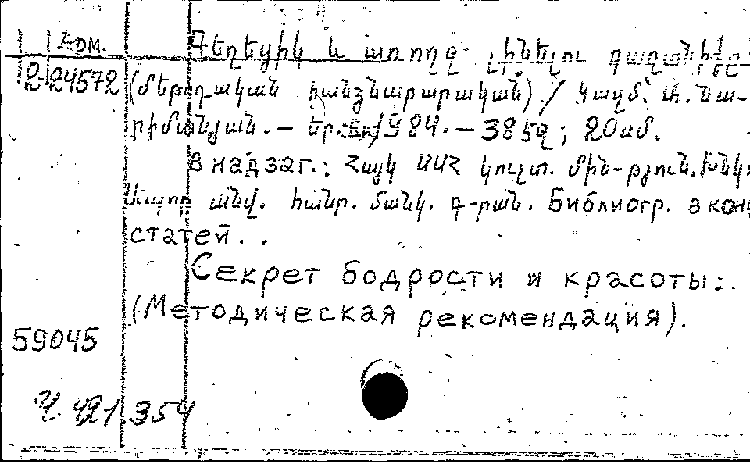 Арм.
Գեղեցիկ և առողջ լինելու գաղտնիքը
2 24572 (մեթոդական հանձնարարական) / Կազմ՝
- Եր., 1984. - 385զ; 20սմ.
В надзаг.: Հայկ ՍՍՀ կուլտ. մին-թյուն.
անվ. հանր. մանկ. գ-րան. Библиогр. в кон
статей..
Секрет бодрости и красоты:.
(Методическая рекомендация).
59045
Ч. 421.354